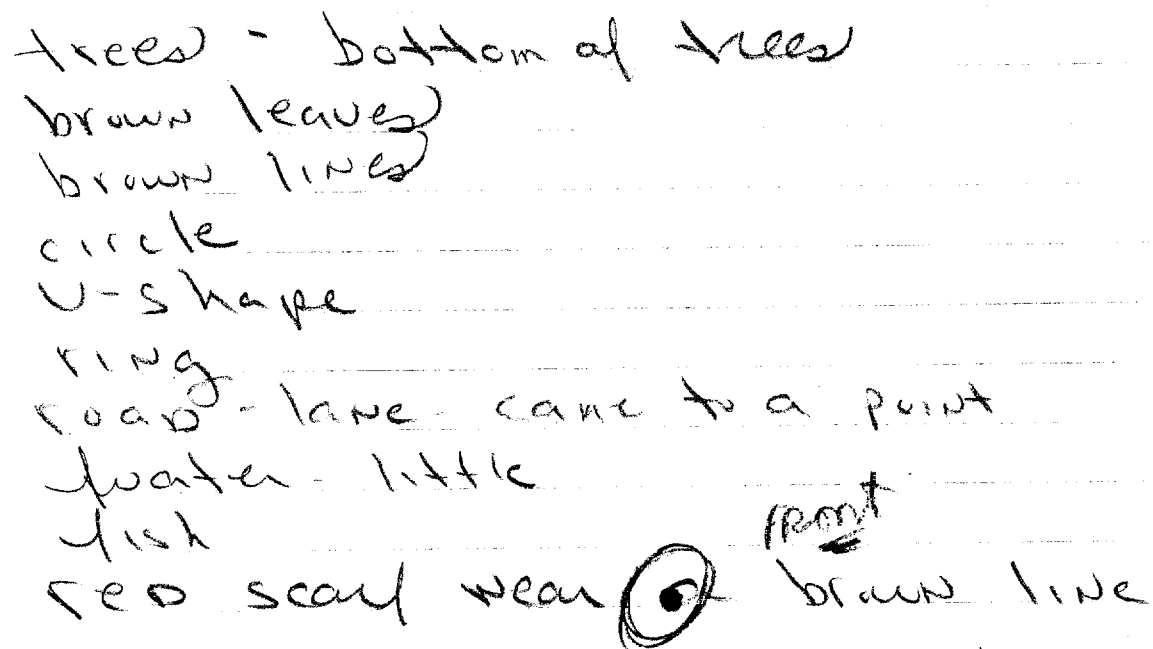 trees - bottom of trees
brown leaves
brown lines
circle
U-shape
ring
road - lane - came to a point
water - little
fish
front
red scarf near brown line